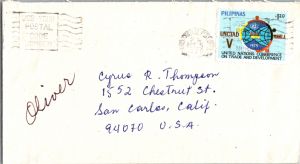 USE YOUR
POSTAL
PILIPINAS
UNCTAD
V
MANILA
1979
UNITED NATIONS CONFERENCE
ON TRADE AND DEVELOPMENT
Oliver
Cyrus R. Thompson
1552 Chestnut St.
San Carlos, Calif.
94070 U.S.A.